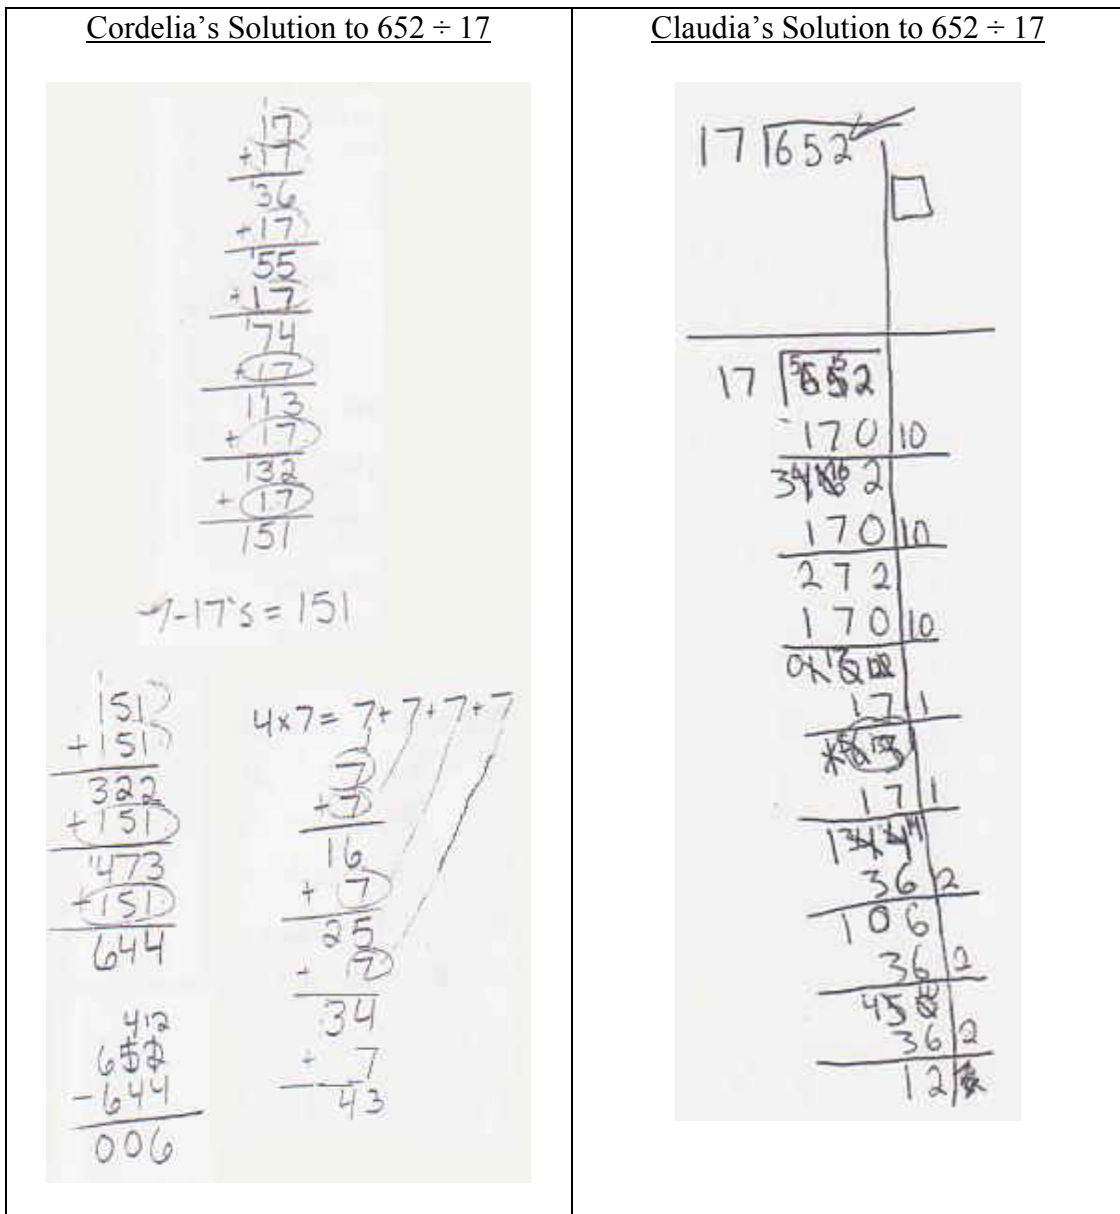 Cordelia's Solution to 652 ÷ 17
17
+17
36
+17
55
+17
74
+17
113
+17
132
+17
151
7-17's = 151
151
+151
322
+151
473
+151
644
412
652
-644
006
4x7 = 7+7+7+7
7
+7
16
+ 7
25
+ 7
34
+ 7
43
Claudia's Solution to 652 ÷ 17
17 652
17 652
170 10
2
170 10
272
170 10
17 1
17 1
36 2
106
36 2
45
36 2
12